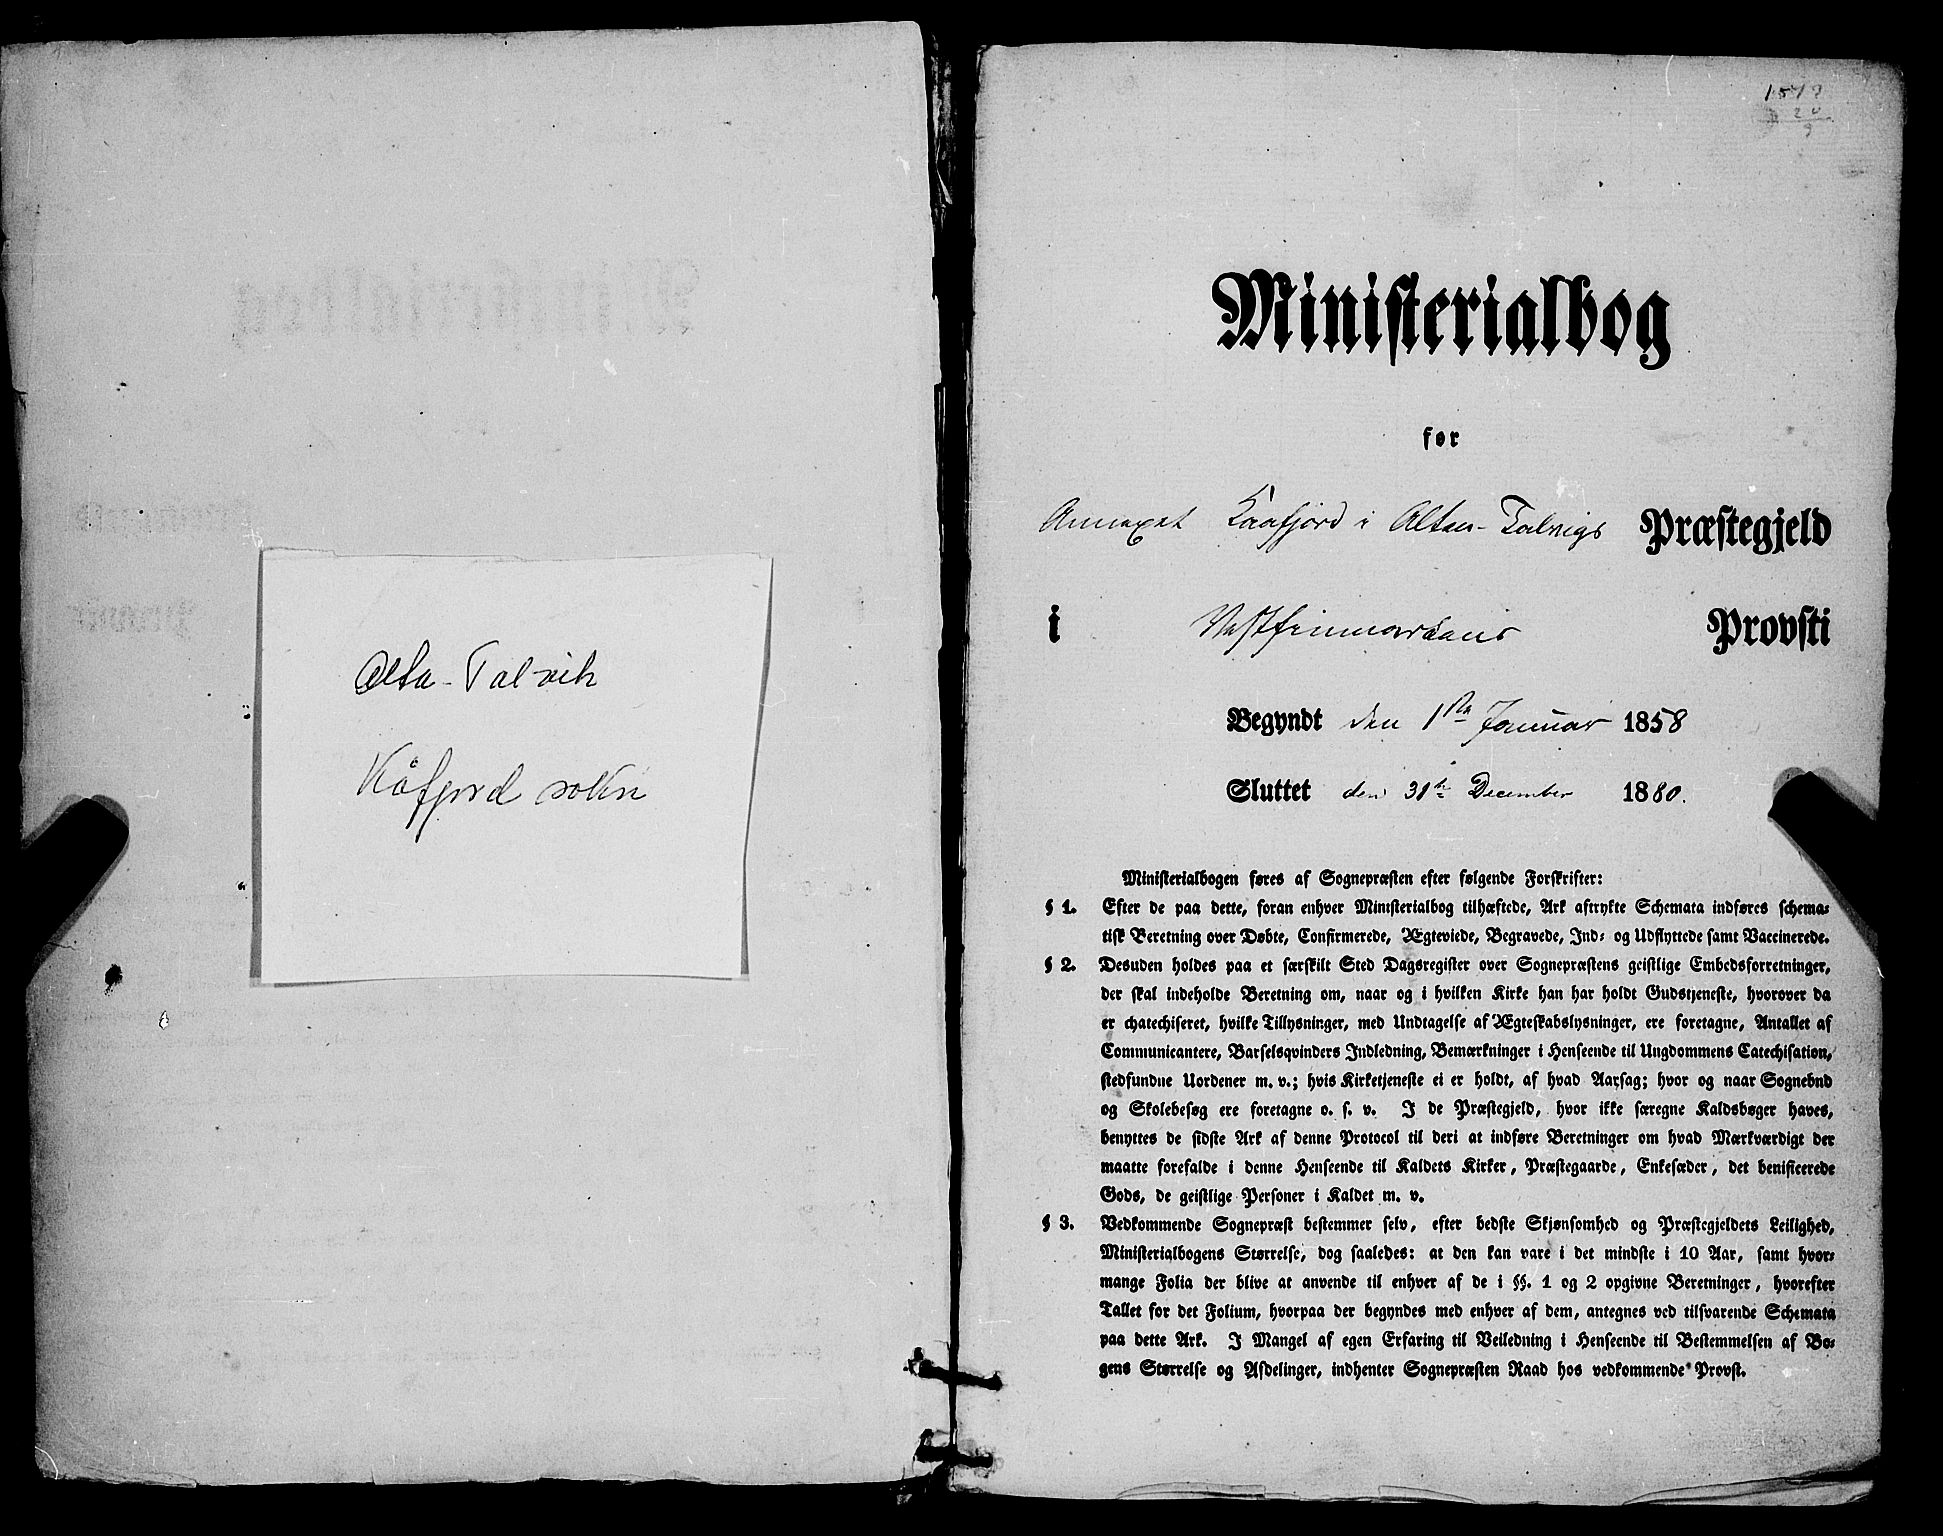 Alta-Talvik
Kåfjord sokn
Ministerialbog
for
Annexet Kaafjord i Alten-Talvigs Præstegjeld
i Vestfinmarkens Provsti
Begyndt den 1ste Januar 1858
Sluttet den 31te December 1880.
Ministerialbogen føres af Sognepræsten efter følgende Forskrifter:
§ 1. Efter de paa dette, foran enhver Ministerialbog tilhæftede, Ark aftrykte Schemata indføres schema-
tisk Beretning over Døbte, Confirmerede, Ægteviede, Begravede, Ind- og Udflyttede samt Vaccinerede.
§ 2. Desuden holdes paa et særskilt Sted Dagsregister over Sognepræstens geistlige Embedsforretninger,
der skal indeholde Beretning om, naar og i hvilken Kirke han har holdt Gudstjeneste, hvorover da
er chatechiseret, hvilke Tillysninger, med Undtagelse af Ægteskabslysninger, ere foretagne, Antallet af
Communicantere, Barselqvinders Indledning, Bemærkninger i Henseende til Ungdommens Catechisation,
stedfundne Uordener m. v.; hvis Kirketjeneste ei er holdt, af hvad Aarsag; hvor og naar Sognebud
og Skolebesøg ere foretagne o. s. v. I de Præstegjeld, hvor ikke særegne Kaldsbøger haves,
benyttes de sidste Ark af denne Protocol til deri at indføre Beretninger om hvad Mærkværdigt der
maatte forefalde i denne Henseende til Kaldets Kirker, Præstegaarde, Enkesæder, det benificerede
Gods, de geistlige Personer i Kaldet m. v.
§ 3. Vedkommende Sognepræst bestemmer selv, efter bedste Skjønsomhed og Præstegjeldets Leilighed,
Ministerialbogens Størrelse, dog saaledes: at den kan vare i det mindste i 10 Aar, samt hvor-
mange Folia der blive at anvende til enhver af de i §§. 1 og 2 opgivne Beretninger, hvorefter
Tallet for det Folium, hvorpaa der begyndes med enhver af dem, antegnes ved tilsvarende Schemata
paa dette Ark. I Mangel af egen Erfaring til Veiledning i Henseende til Bestemmelsen af Bo-
gens Størrelse og Afdelinger, indhenter Sognepræsten Raad hos vedkommende Provst.